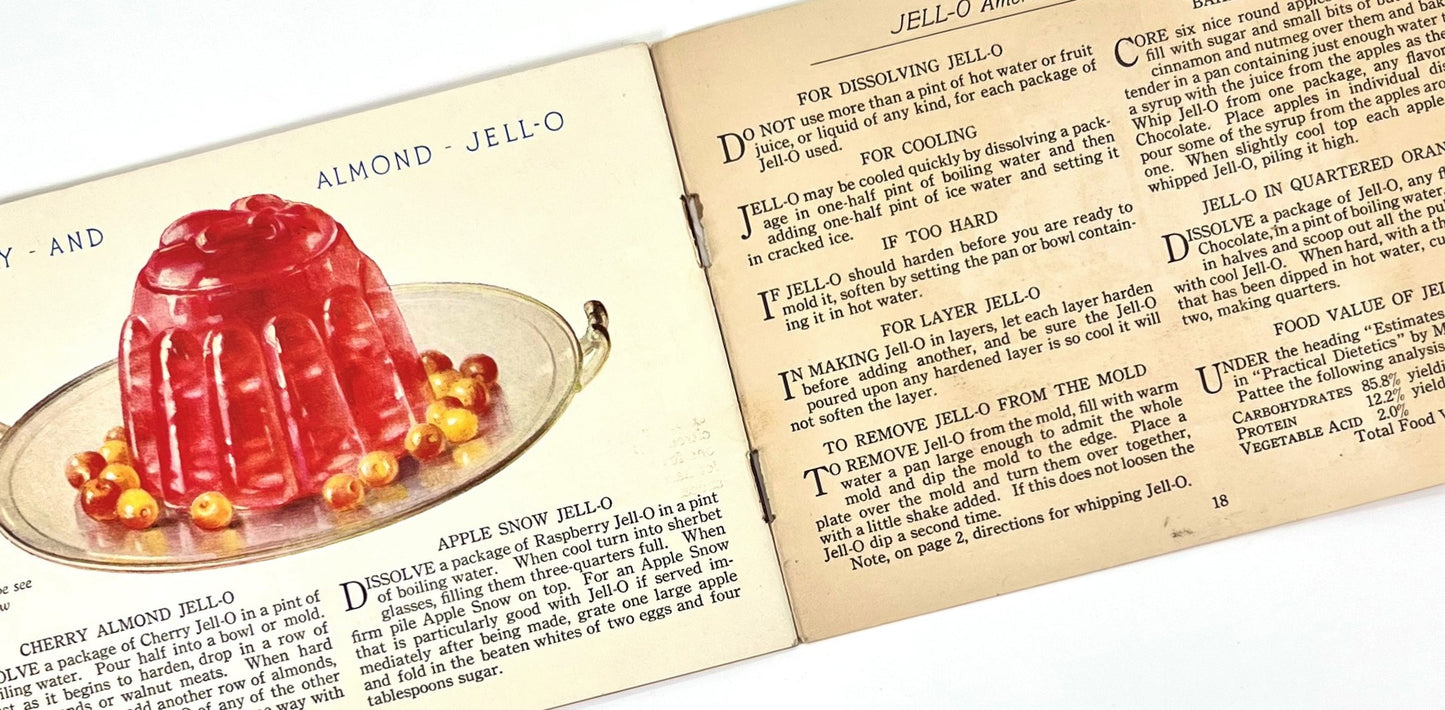 Y - AND
ALMOND - JELL-O
see
CHERRY ALMOND JELL-O
a package of Cherry Jell-O in a pint of
water. Pour half into a bowl or mold.
as it begins to harden, drop in a row of
or walnut meats. When hard
another row of almonds,
of any of the other
way with
APPLE SNOW JELL-O
DISSOLVE a package of Raspberry Jell-O in a pint
of boiling water. When cool turn into sherbet
glasses, filling them three-quarters full. When
firm pile Apple Snow on top. For an Apple Snow
that is particularly good with Jell-O if served im-
mediately after being made, grate one large apple
and fold in the beaten whites of two eggs and four
tablespoons sugar.
JELL-O
FOR DISSOLVING JELL-O
DO NOT use more than a pint of hot water or fruit
juice, or liquid of any kind, for each package of
Jell-O used.
FOR COOLING
JELL-O may be cooled quickly by dissolving a pack-
age in one-half pint of boiling water and then
adding one-half pint of ice water and setting it
in cracked ice.
IF TOO HARD
IF JELL-O should harden before you are ready to
mold it, soften by setting the pan or bowl contain-
ing it in hot water.
FOR LAYER JELL-O
IN MAKING Jell-O in layers, let each layer harden
before adding another, and be sure the Jell-O
poured upon any hardened layer is so cool it will
not soften the layer.
TO REMOVE JELL-O FROM THE MOLD
TO REMOVE Jell-O from the mold, fill with warm
water a pan large enough to admit the whole
mold and dip the mold to the edge. Place a
plate over the mold and turn them over together,
with a little shake added. If this does not loosen the
Jell-O dip a second time.
Note, on page 2, directions for whipping Jell-O.
CORE six nice round
fill with sugar and small bits of
cinnamon and nutmeg over them and
tender in a pan containing just enough water
a syrup with the juice from the apples as the
Whip Jell-O from one package, any
Chocolate. Place apples in individual
pour some of the syrup from the apples
one. When slightly cool top each apple
whipped Jell-O, piling it high.
JELL-O IN QUARTERED
DISSOLVE a package of Jell-O, any
Chocolate, in a pint of boiling water
in halves and scoop out all the
with cool Jell-O. When hard, with a
that has been dipped in hot water,
two, making quarters.
FOOD VALUE OF
UNDER the heading "Estimates
in "Practical Dietetics" by
Pattee the following analysis
CARBOHYDRATES 85.8%
PROTEIN 12.2%
VEGETABLE ACID 2.0%
Total Food
18